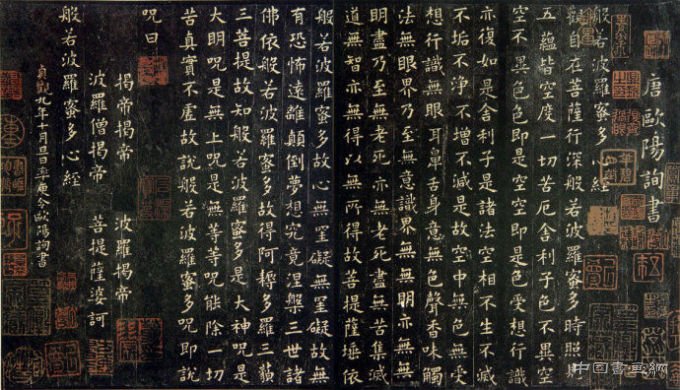 唐歐陽詢書
般若波羅蜜多心經
觀自在菩薩行深般若波羅蜜多時照見
五蘊皆空度一切苦厄舍利子色不異空
空不異色色即是空空即是色受想行識
亦復如是舍利子是諸法空相不生不滅
不垢不淨不增不減是故空中無色無受
想行識無眼耳鼻舌身意無色聲香味觸
法無眼界乃至無意識界無無明亦無無
明盡乃至無老死亦無老死盡無苦集滅
道無智亦無得以無所得故菩提薩埵依
般若波羅蜜多故心無罣礙無罣礙故無
有恐怖遠離顛倒夢想究竟涅槃三世諸
佛依般若波羅蜜多故得阿耨多羅三藐
三菩提故知般若波羅蜜多是大神呪是
大明呪是無上呪是無等等呪能除一切
苦真實不虛故說般若波羅蜜多呪即說
呪曰
揭帝揭帝 波羅揭帝
波羅僧揭帝 菩提薩婆訶
般若波羅蜜多心經
貞觀九年十月旦日率更令歐陽詢書
中国書画網